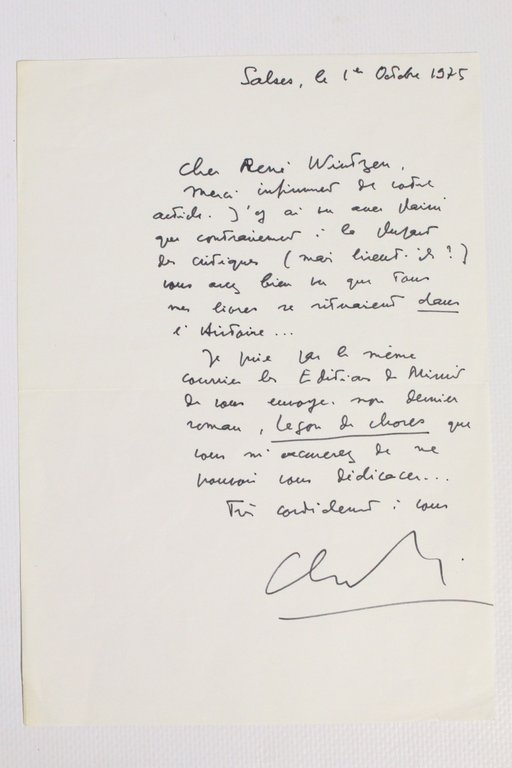 Salses, le 1er Octobre 1975
Cher René Wintzen,
Merci infiniment de votre
article. J'y ai vu avec plaisir
que contrairement à la plupart
des critiques (mais lisent-ils ?)
vous avez bien vu que tous
mes livres se situaient dans
l'Histoire...
Je prie par le même
courrier les Editions de Minuit
de vous envoyer mon dernier
roman, Leçon de choses que
vous m'excuserez de ne
pouvoir vous dédicacer...
Très cordialement à vous